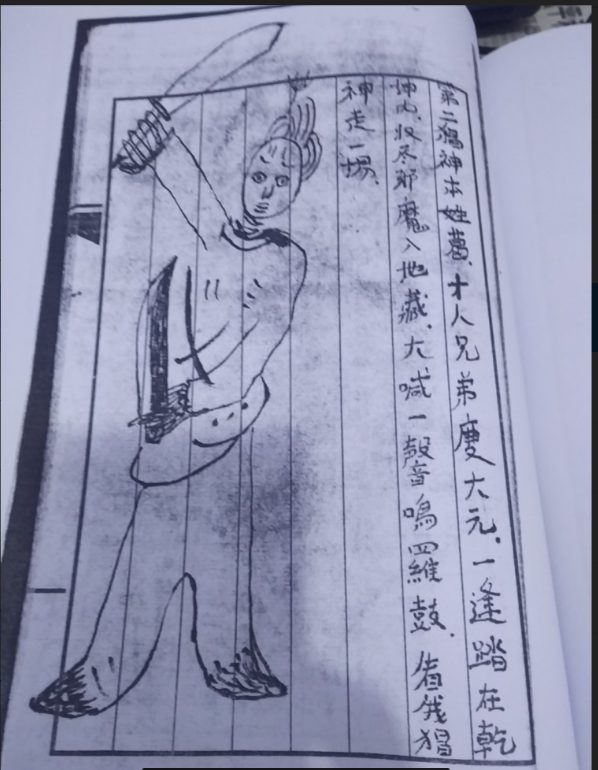 第二猖神本姓葛、才人兄弟度大元、一逢踏在乾
坤内、收尽邪魔入地藏、大喊一聲音鳴四維鼓、看我猖
神走一場、